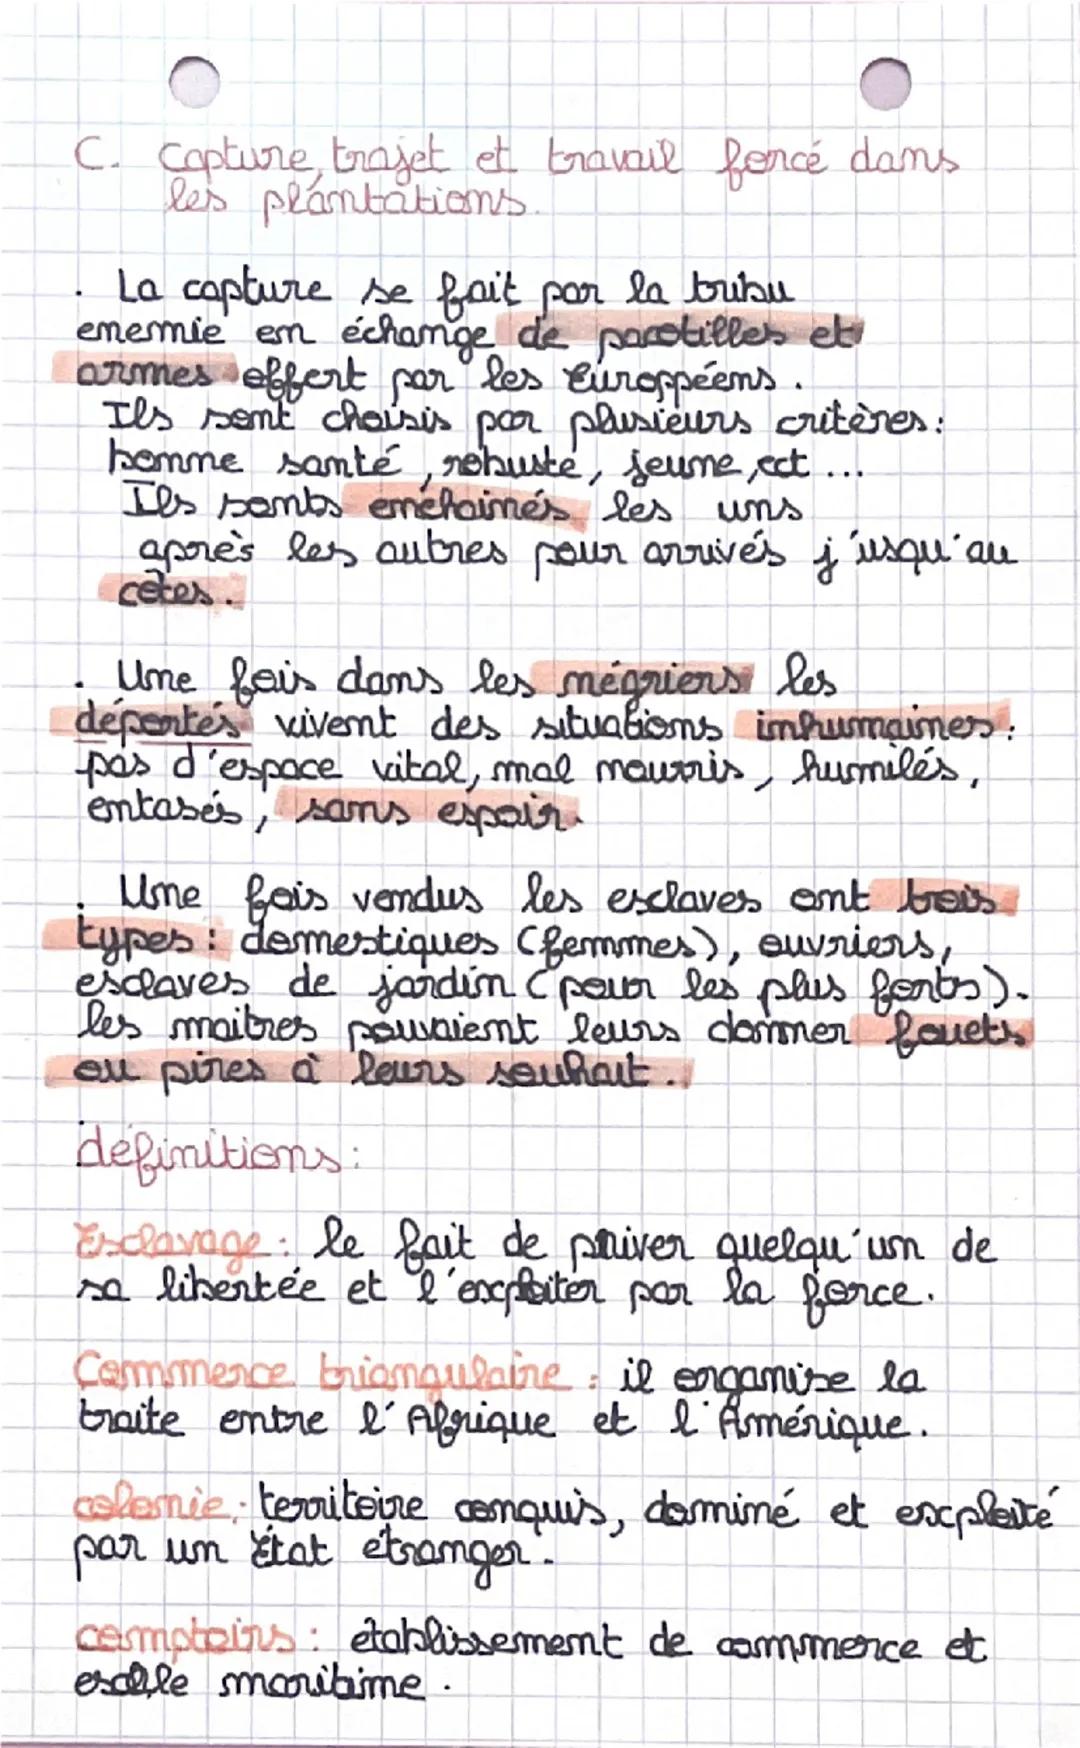 C. Capture, trajet et travail forcé dans
les plantations.
. La capture se fait par la tribu
enemie en échange de pacotilles et
armes offert par les Europpéens.
Ils sont choisis par plusieurs critères:
bonne santé, robuste, jeune, ect ...
Ils sonts enchainés les uns
après les autres pour arrivés j'usqu'au
côtes.
. Une fois dans les négriers les
déportés vivent des situations inhumaines:
pas d'espace vital, mal nourris, humilés,
entasés, sans espoir.
. Une fois vendus les esclaves ont trois
types: domestiques (femmes), ouvriers,
esclaves de jardin (pour les plus forts).
les maitres pouvaient leurs donner fouets
ou pires à leurs souhait.
définitions:
Esclavage: le fait de priver quelqu'un de
sa libertée et l'exploiter par la force.
Commerce triangulaire: il organise la
traite entre l'Afrique et l'Amérique.
colonie: territoire conquis, dominé et exploité
par un état étranger.
comptoirs: établissement de commerce et
escale maritime.